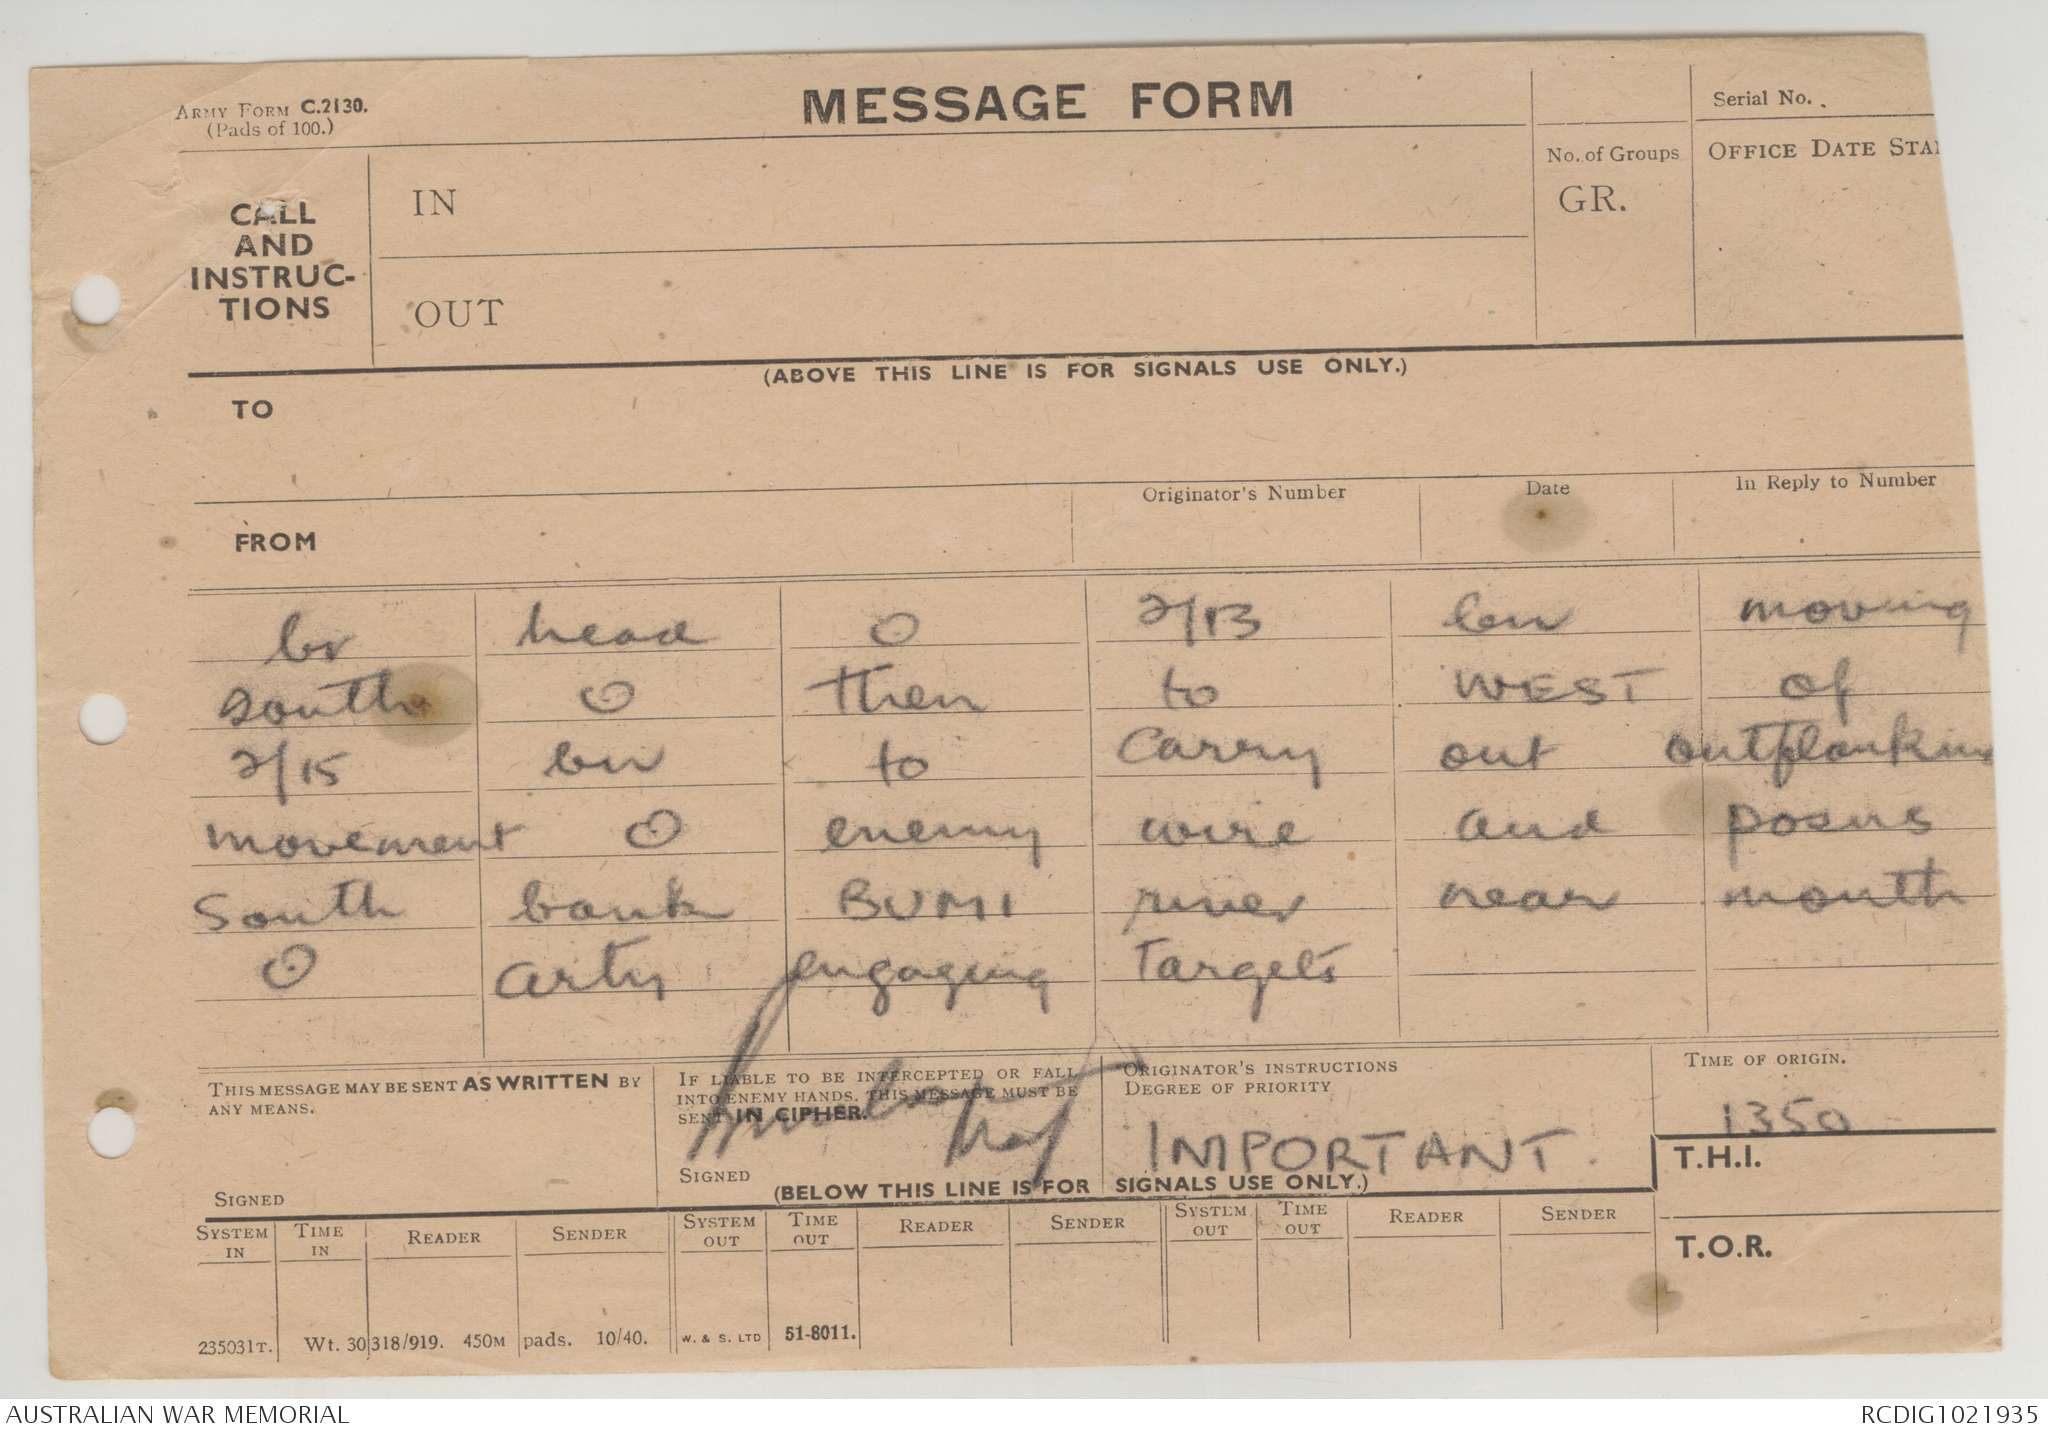 ARMY FORM C.2130.
(Pads of 100.)
MESSAGE FORM
Serial No.
CALL
AND
INSTRUC-
TIONS
IN
OUT
No. of Groups
GR.
OFFICE DATE STA
(ABOVE THIS LINE IS FOR SIGNALS USE ONLY.)
TO
FROM
Originator's Number
Date
In Reply to Number
br head O 2/13 bn moving
south O then to WEST of
2/15 bn to carry out outflanking
movement O enemy wire and posns
South bank BUMI river near mouth
O arty engaging Targets
THIS MESSAGE MAY BE SENT AS WRITTEN BY
ANY MEANS.
SIGNED
IF LIABLE TO BE INTERCEPTED OR FALL
INTO ENEMY HANDS, THIS MESSAGE MUST BE
SENT IN CIPHER.
SIGNED
ORIGINATOR'S INSTRUCTIONS
DEGREE OF PRIORITY
IMPORTANT.
TIME OF ORIGIN.
1350
T.H.I.
T.O.R.
(BELOW THIS LINE IS FOR SIGNALS USE ONLY.)
SYSTEM IN
TIME IN
READER
SENDER
SYSTEM OUT
TIME OUT
READER
SENDER
SYSTEM OUT
TIME OUT
READER
SENDER
235031T. Wt. 30318/919. 450M pads. 10/40. W. & S. LTD 51-8011.
AUSTRALIAN WAR MEMORIAL
RCDIG1021935